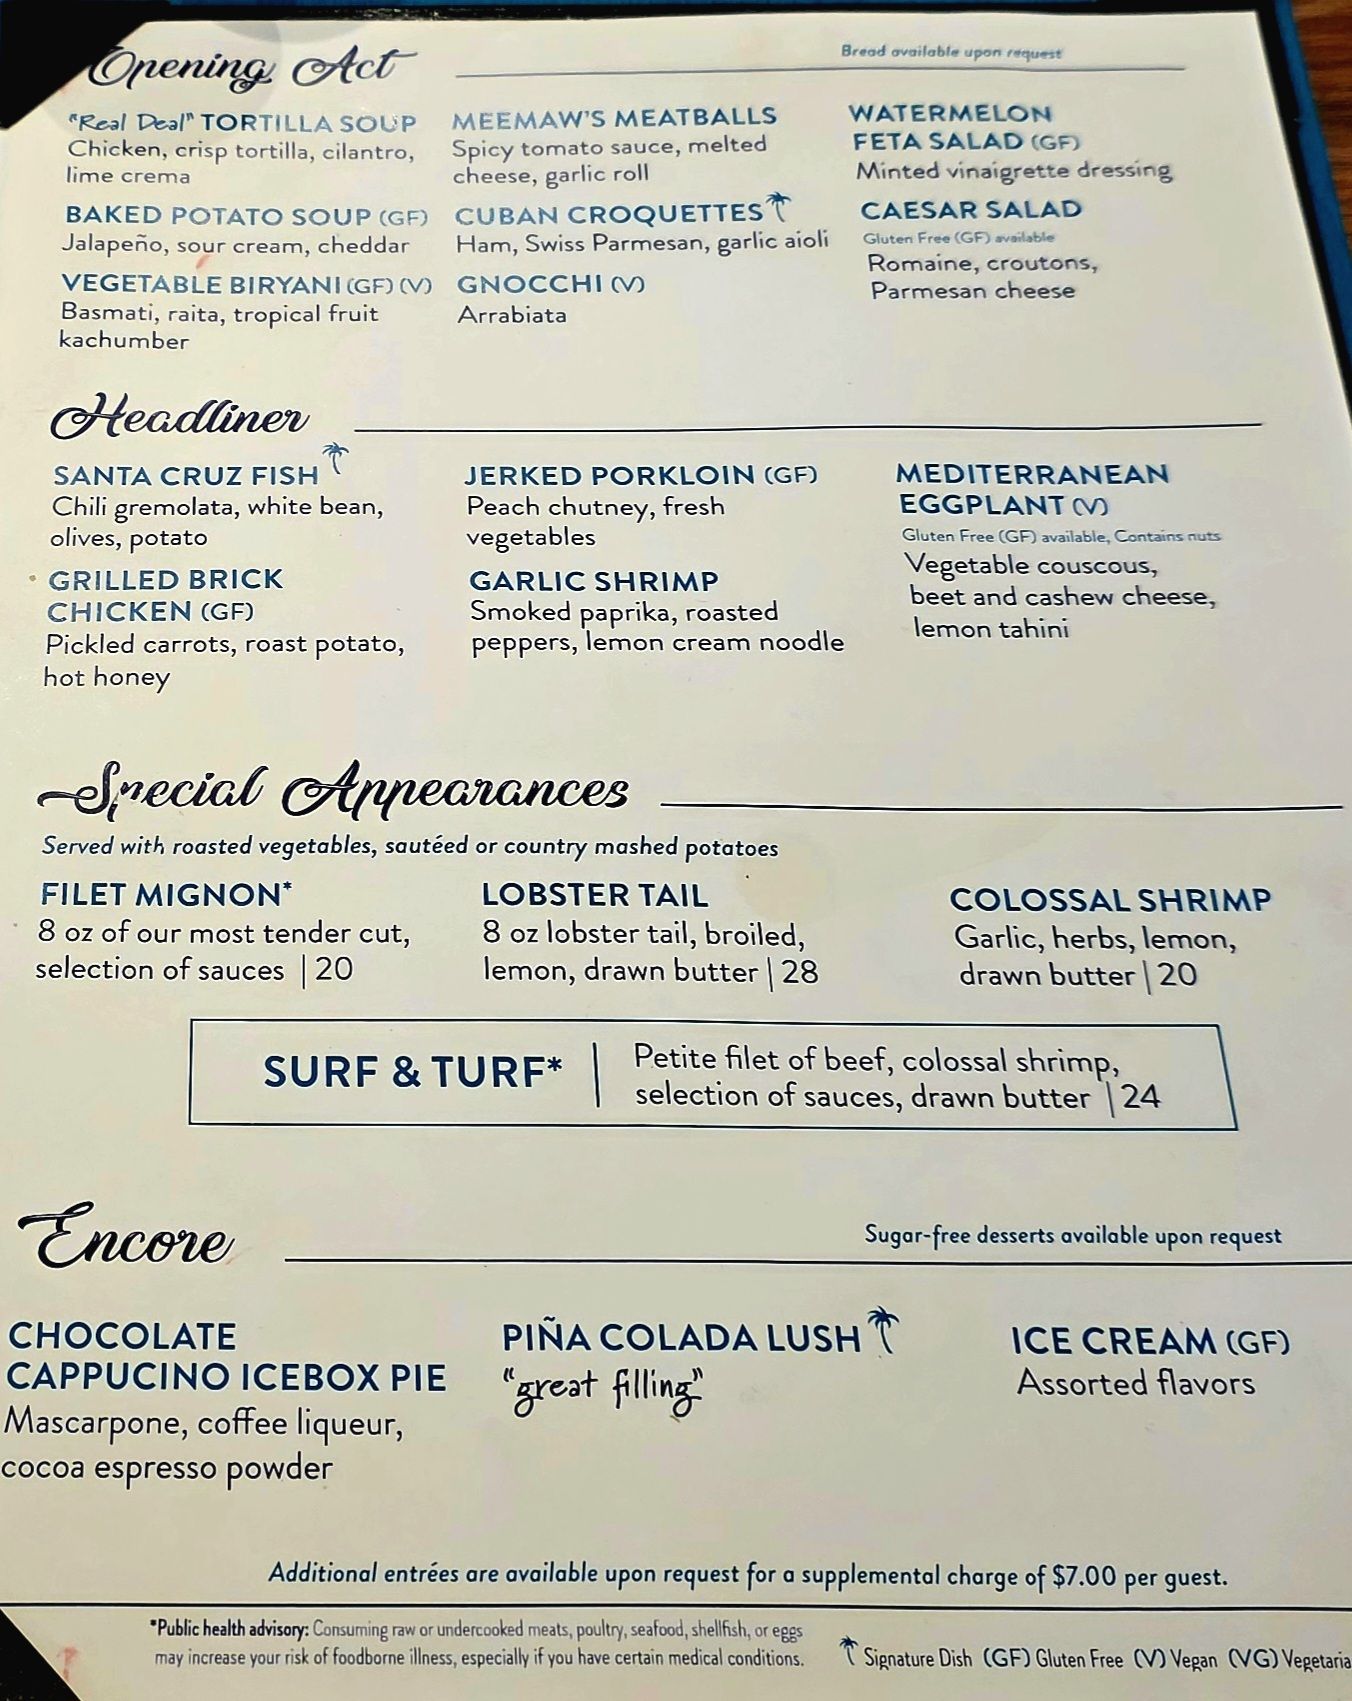 Opening Act
Bread available upon request
"Real Deal" TORTILLA SOUP
Chicken, crisp tortilla, cilantro,
lime crema
BAKED POTATO SOUP (GF)
Jalapeño, sour cream, cheddar
VEGETABLE BIRYANI (GF) (V)
Basmati, raita, tropical fruit
kachumber
MEEMAW'S MEATBALLS
Spicy tomato sauce, melted
cheese, garlic roll
CUBAN CROQUETTES
Ham, Swiss Parmesan, garlic aioli
GNOCCHI (V)
Arrabiata
WATERMELON
FETA SALAD (GF)
Minted vinaigrette dressing
CAESAR SALAD
Gluten Free (GF) available
Romaine, croutons,
Parmesan cheese
Headliner
SANTA CRUZ FISH
Chili gremolata, white bean,
olives, potato
GRILLED BRICK
CHICKEN (GF)
Pickled carrots, roast potato,
hot honey
JERKED PORKLOIN (GF)
Peach chutney, fresh
vegetables
GARLIC SHRIMP
Smoked paprika, roasted
peppers, lemon cream noodle
MEDITERRANEAN
EGGPLANT (V)
Gluten Free (GF) available, Contains nuts
Vegetable couscous,
beet and cashew cheese,
lemon tahini
Special Appearances
Served with roasted vegetables, sautéed or country mashed potatoes
FILET MIGNON*
8 oz of our most tender cut,
selection of sauces | 20
LOBSTER TAIL
8 oz lobster tail, broiled,
lemon, drawn butter | 28
COLOSSAL SHRIMP
Garlic, herbs, lemon,
drawn butter | 20
SURF & TURF*
Petite filet of beef, colossal shrimp,
selection of sauces, drawn butter | 24
Encore
Sugar-free desserts available upon request
CHOCOLATE
CAPPUCINO ICEBOX PIE
Mascarpone, coffee liqueur,
cocoa espresso powder
PIÑA COLADA LUSH
"great filling"
ICE CREAM (GF)
Assorted flavors
Additional entrées are available upon request for a supplemental charge of $7.00 per guest.
*Public health advisory: Consuming raw or undercooked meats, poultry, seafood, shellfish, or eggs
may increase your risk of foodborne illness, especially if you have certain medical conditions.
Signature Dish (GF) Gluten Free (V) Vegan (VG) Vegetaria